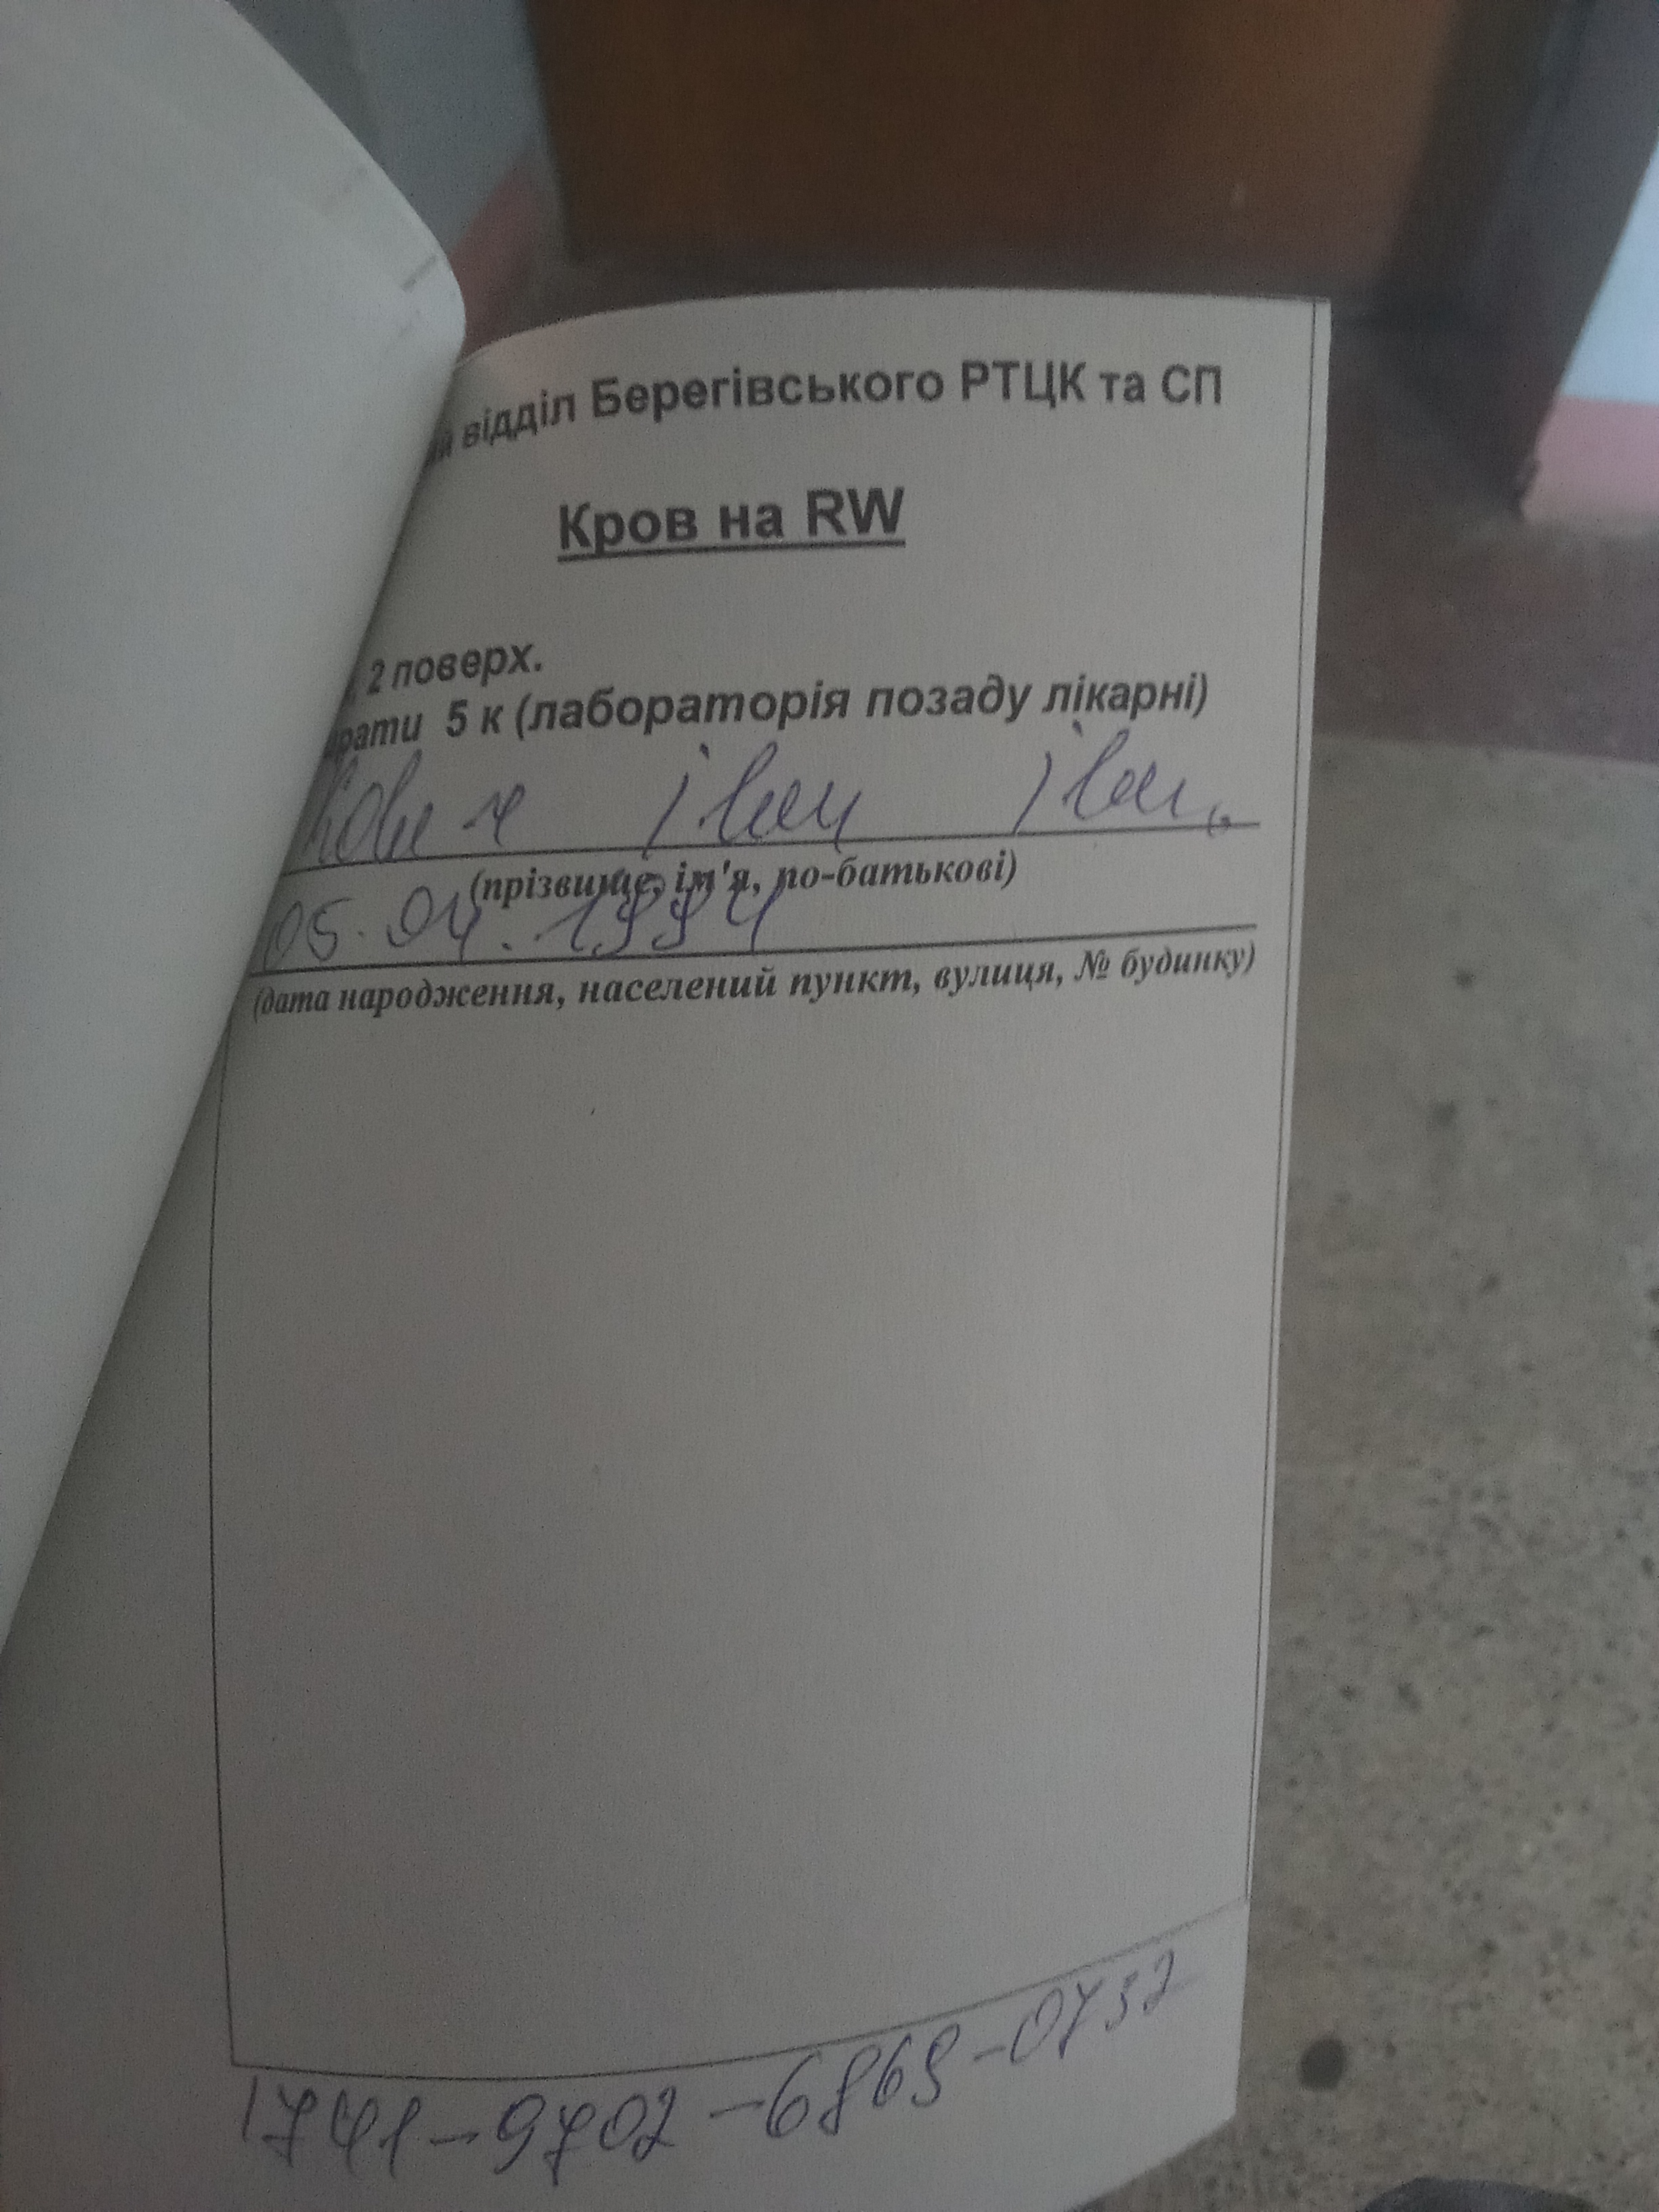 відділ Берегівського РТЦК та СП
Кров на RW
2 поверх.
5 к (лабораторія позаду лікарні)
Іван Іван.
(прізвище, ім'я, по-батькові)
05.04.1994
(дата народження, населений пункт, вулиця, № будинку)
1741-9702-6869-0732